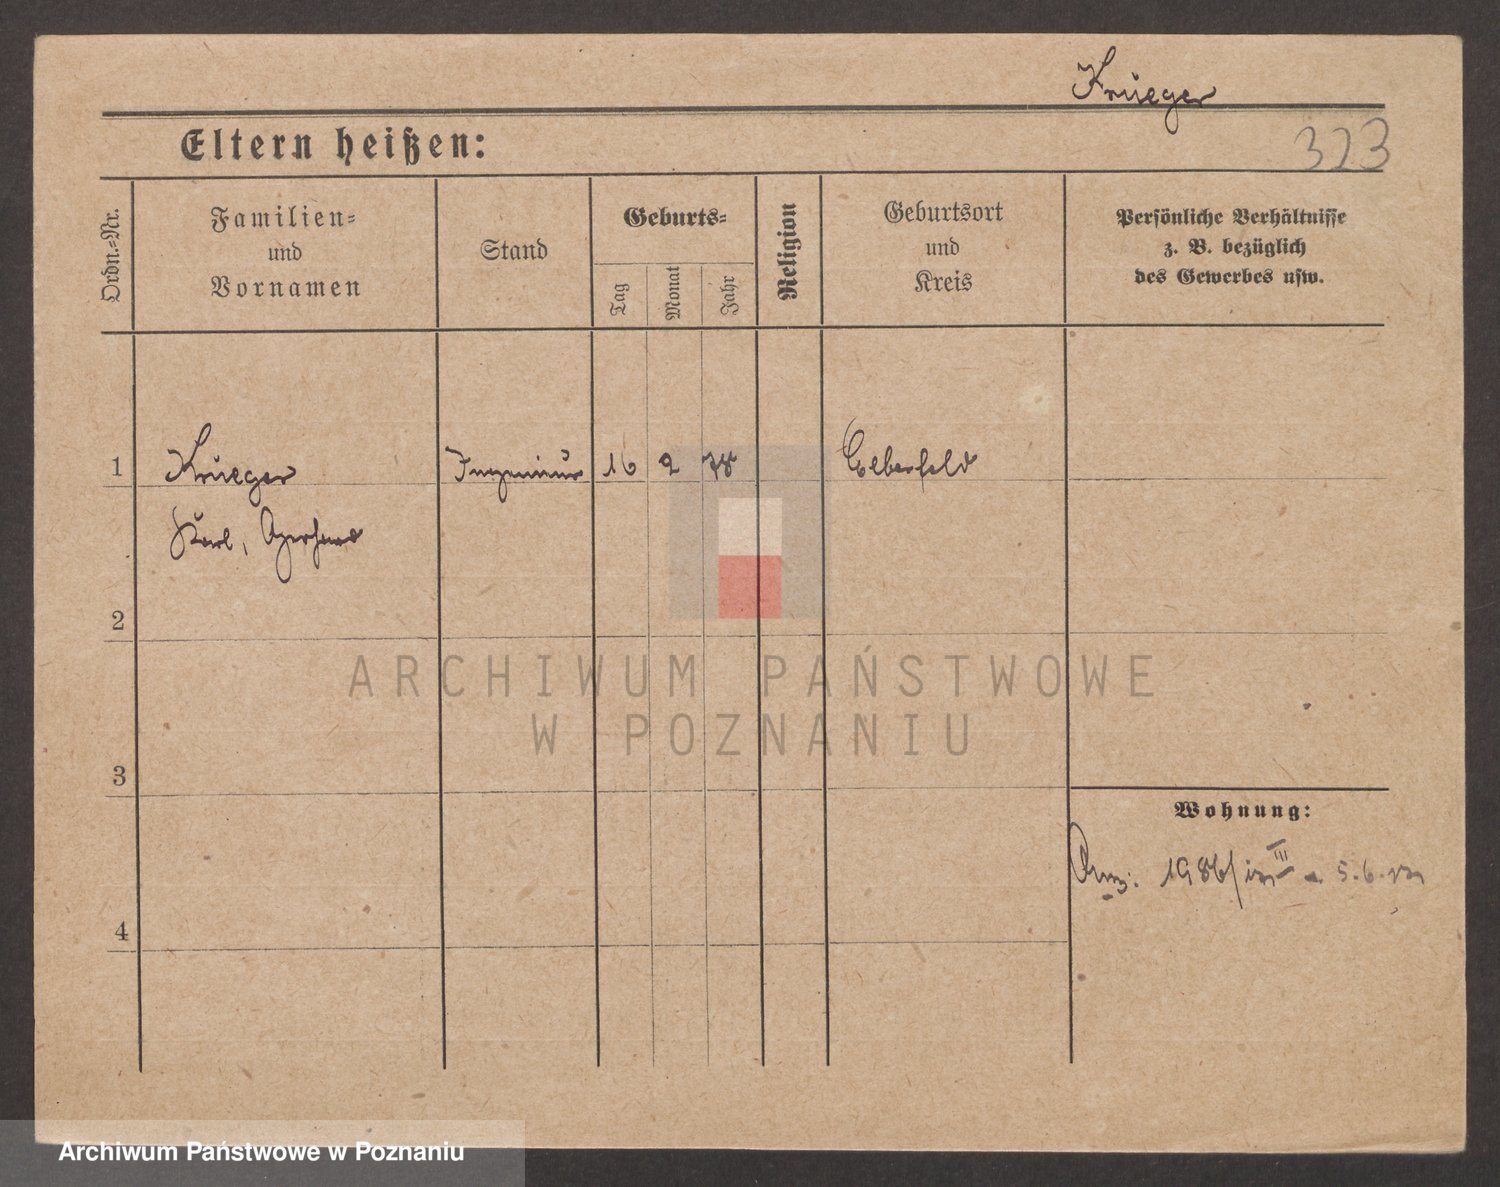 Krüeger
Eltern heißen:
323
Ordn.-Nr.
Familien-
und
Vornamen
Stand
Geburts-
Tag
Monat
Jahr
Religion
Geburtsort
und
Kreis
Persönliche Verhältnisse
z. B. bezüglich
des Gewerbes usw.
1 Krüeger Ingenieur 16 2 78 Elberfeld
Karl, Gerhard
2
3
4
ARCHIWUM PAŃSTWOWE
W POZNANIU
Wohnung:
1986/ III 5.6.
Archiwum Państwowe w Poznaniu